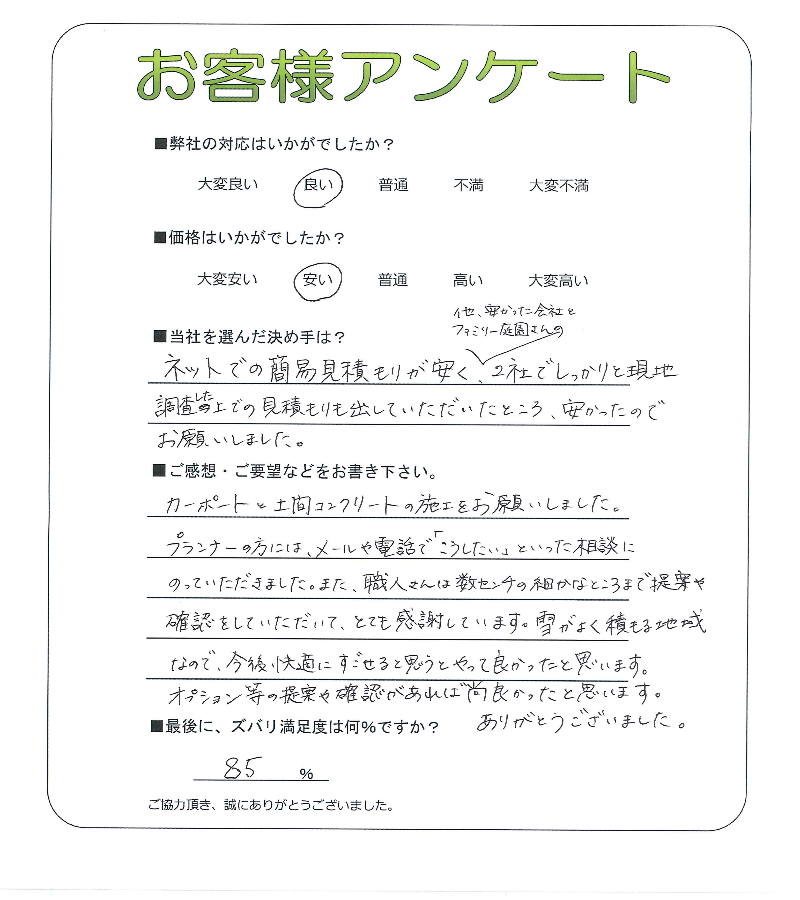 お客様アンケート
■弊社の対応はいかがでしたか？
大変良い 良い 普通 不満 大変不満
■価格はいかがでしたか？
大変安い 安い 普通 高い 大変高い
他、安かった会社と
ファミリー庭園さんの
■当社を選んだ決め手は？
ネットでの簡易見積もりが安く、2社でしっかりと現地
調査した上での見積もりも出していただいたところ、安かったので
お願いしました。
■ご感想・ご要望などをお書き下さい。
カーポートと土間コンクリートの施工をお願いしました。
プランナーの方には、メールや電話で「こうしたい」といった相談に
のっていただきました。また、職人さんは数センチの細かなところまで提案や
確認をしていただいて、とても感謝しています。雪がよく積もる地域
なので、今後快適にすごせると思うとやって良かったと思います。
オプション等の提案や確認があれば尚良かったと思います。
ありがとうございました。
■最後に、ズバリ満足度は何％ですか？
85 %
ご協力頂き、誠にありがとうございました。